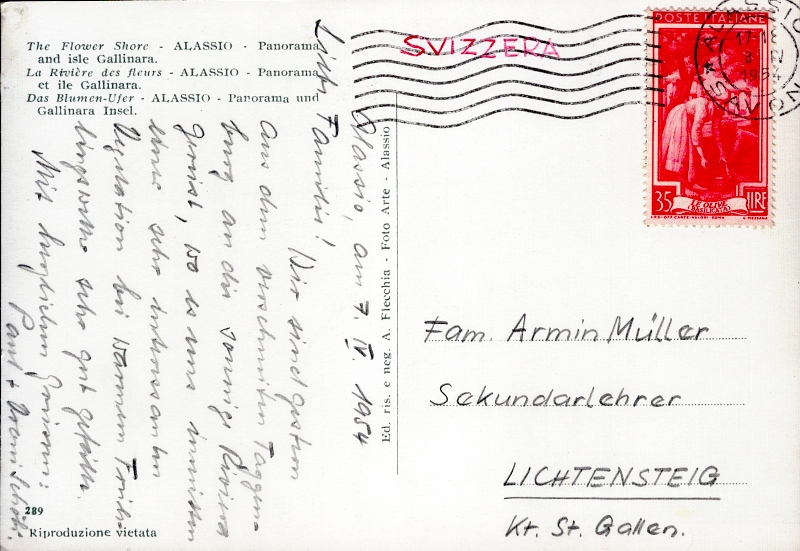 The Flower Shore - ALASSIO - Panorama
and isle Gallinara.
La Rivière des fleurs - ALASSIO - Panorama
et ile Gallinara.
Das Blumen-Ufer - ALASSIO - Panorama und
Gallinara Insel.
Alassio, am 7. IV. 1954
Liebe Familie!
Wir sind gestern
aus dem verschneiten Toggen-
burg an die sonnige Riviera
gereist, wo es uns inmitten
einer sehr interessanten
Vegetation bei warmem Früh-
lingswetter sehr gut gefällt.
Mit herzlichen Grüssen:
Paul +
289
Riproduzione vietata
Ed. ris. e neg. A. Flecchia - Foto Arte - Alassio
SVIZZERA
ALASSIO
17-18
8
1954
SAVONA
POSTE ITALIANE
35 LIRE
LE OLIVE
(BASILICATA)
I.P.S.-OFF. CARTE-VALORI-ROMA
Fam. Armin Müller
Sekundarlehrer
LICHTENSTEIG
Kt. St. Gallen.